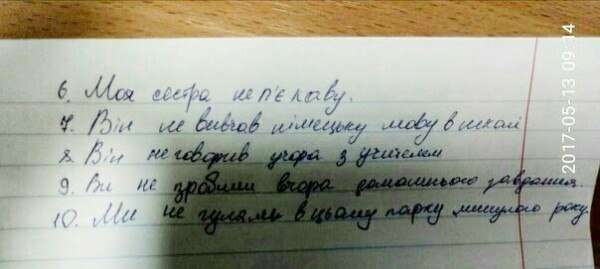 6. Моя сестра не п'є каву.
7. Він не вивчав німецьку мову в школі
8. Він не говорив учора з учителем
9. Ви не зробили вчора домашнього завдання.
10. Ми не гуляли в цьому парку минулого року.
2017-05-13 09:14